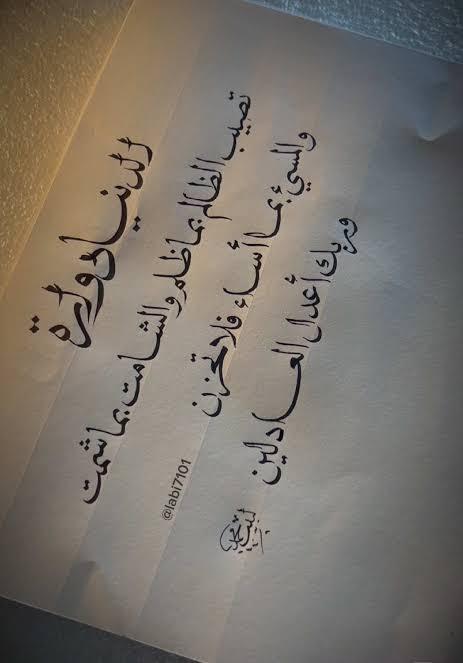 الدنيا دوارة
تصيب الظالم بما ظلم والشامت بما شمت
والمسيئ بما أساء فلا تحزن
وربك أعدل العادلين
@labi7101